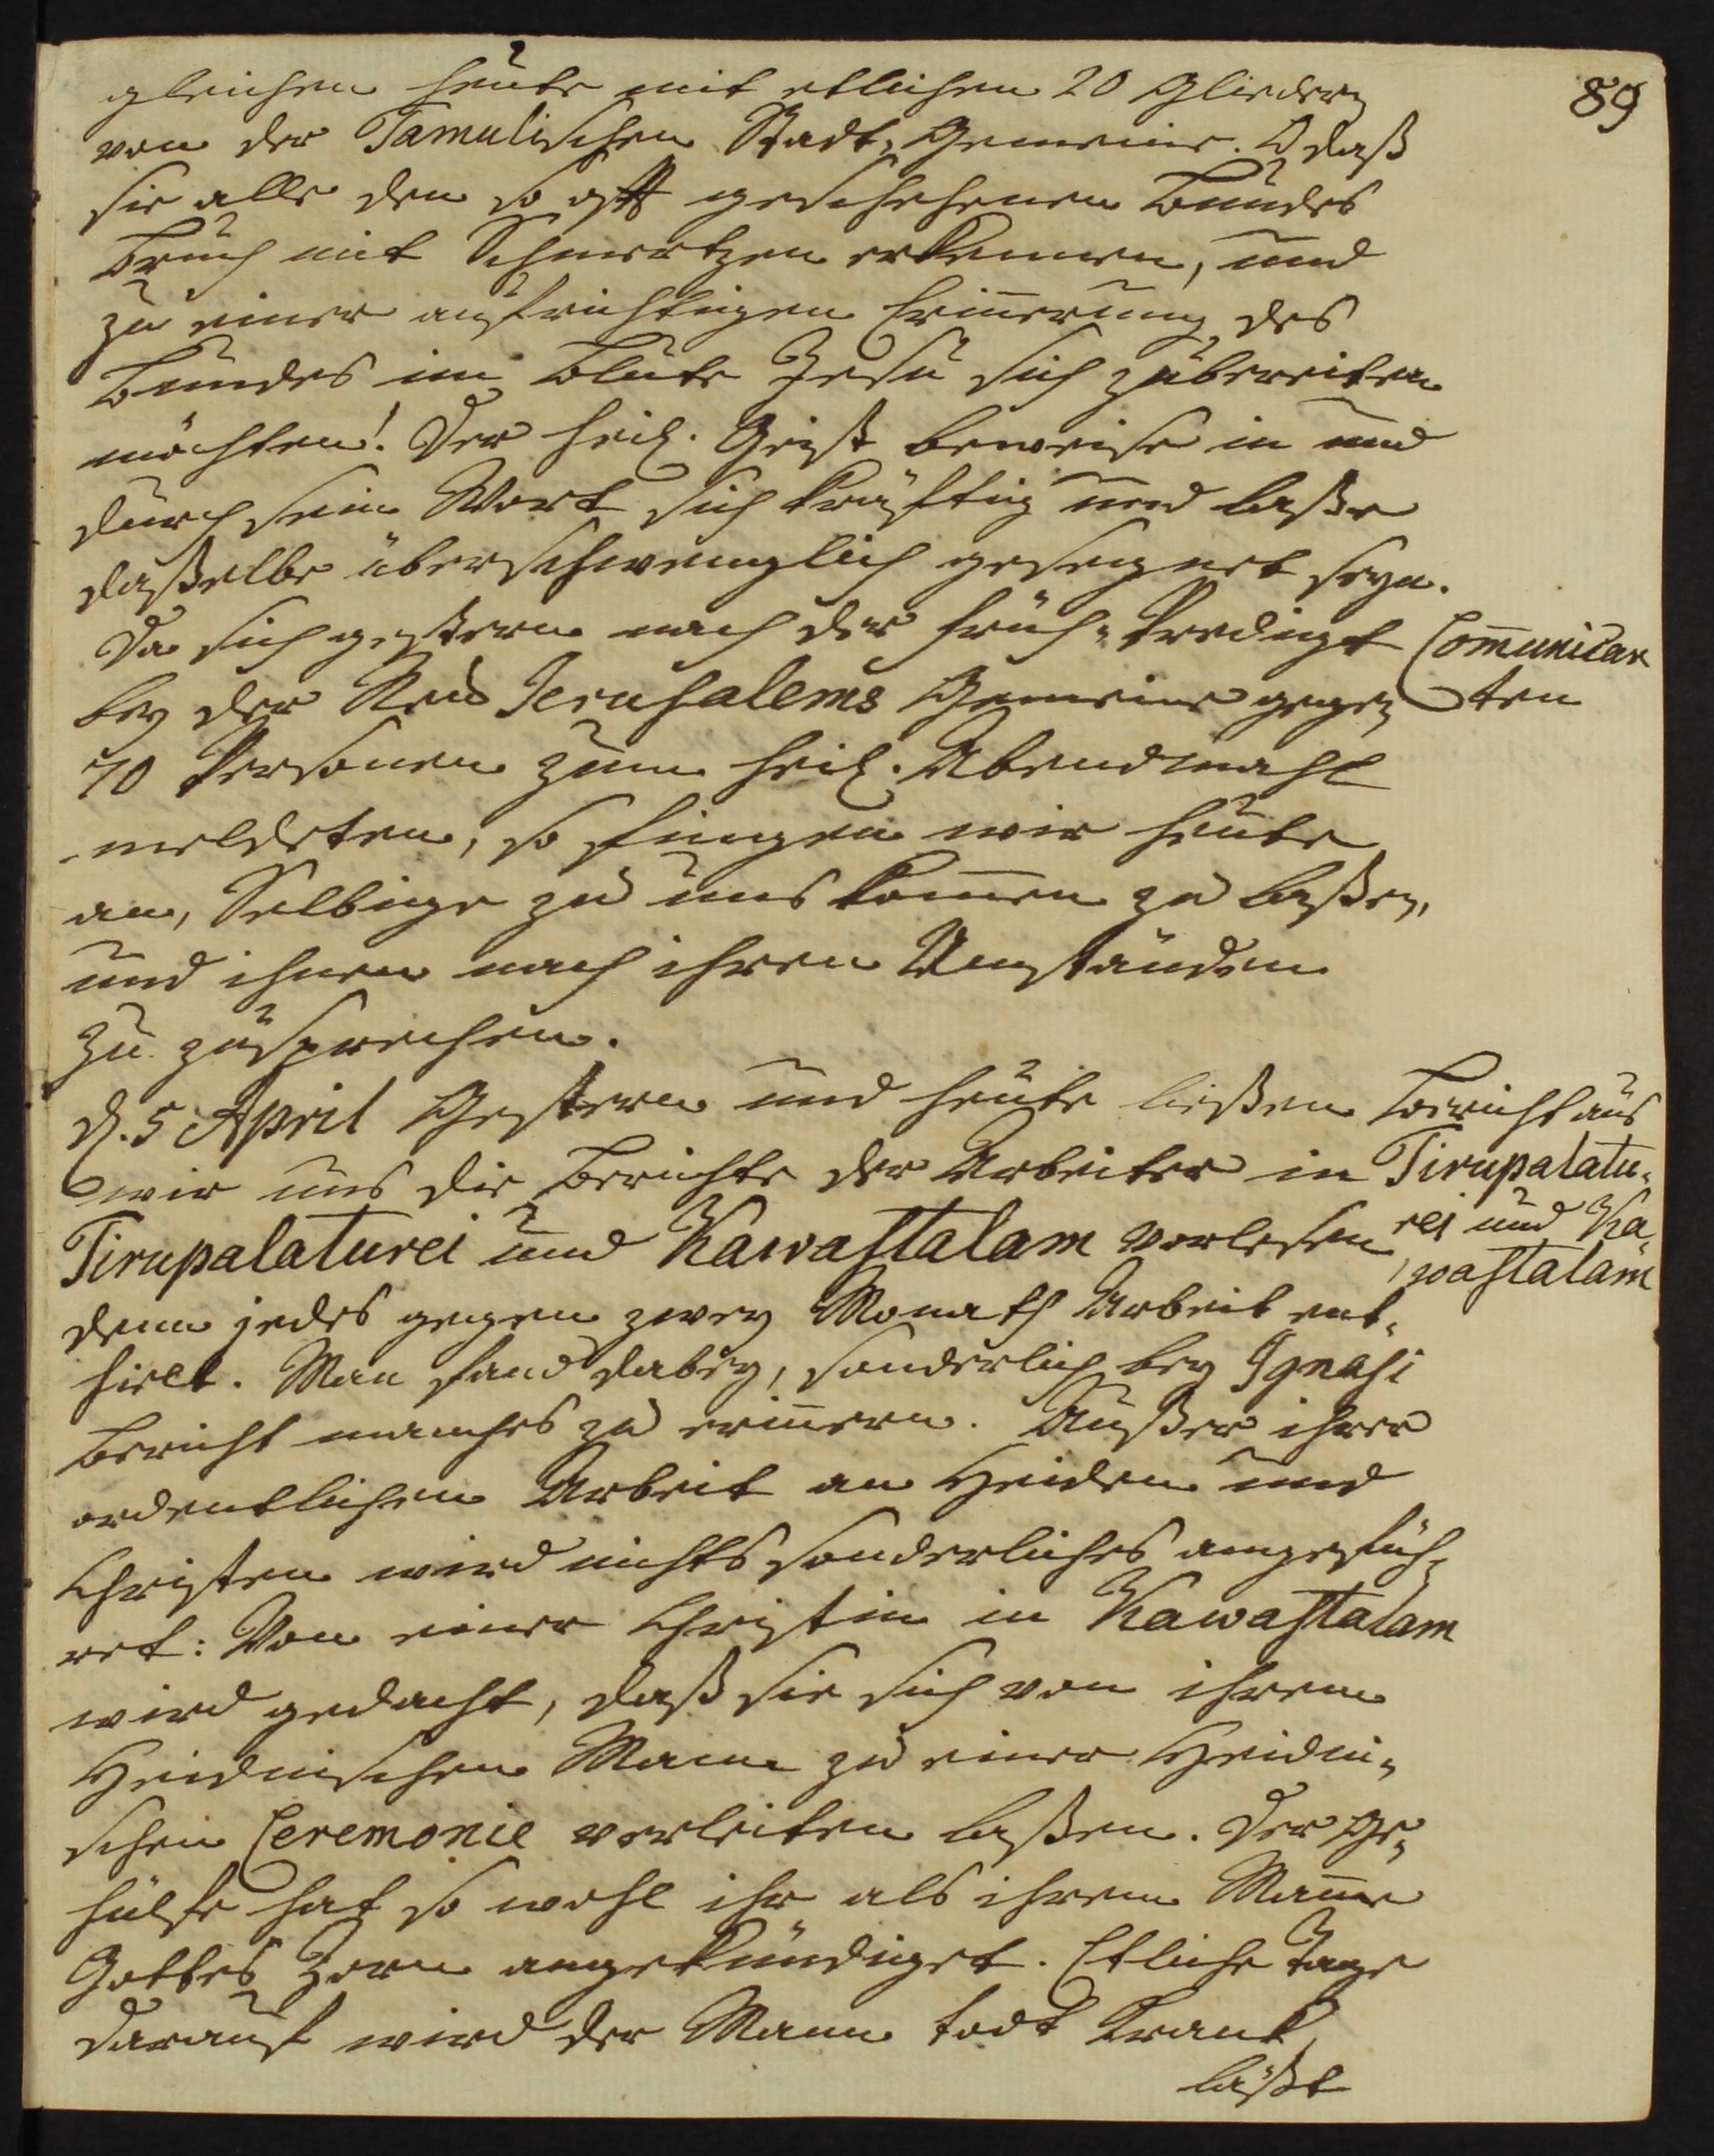 89
gleichen heute mit etlichen 20 Gliedern
von der Tamulischen Stadt-Gemeine. O daß
sie alle den so oft geschehenen Bundes
Bruch mit Schmertzen erkennen, und
zu einer aufrichtigen Erin̄erung des
Bundes im Blute Jesu sich zubereiten
möchten! Der heil. Geist beweise in und
durch sein Wort sich kräftig und laße
daßelbe überschwenglich gesegnet seyn.
Da sich gestern nach der früh-Predigt
bey der Neu Jerusalems Gemeine gegen
70 Personen zum heil. Abendmahl
meldeten, so fingen wir heute
an, Selbige zu uns kom̄en zu laßen,
und ihnen nach ihren Umständen
zu zusprechen.
Com̄unican
ten
d. 5 April Gestern und heute ließen
wir uns die Berichte der Arbeiter in
Tirupalaturei und Kawastalam vorlesen,
denn jedes gegen zwey Monath Arbeit ent-
hielt. Man fand dabey, sonderlich bey Ignasi
Bericht manches zu erin̄ern. Außer ihrer
ordentlichen Arbeit an Heiden und
Christen wird nichts sonderliches angefüh-
ret: Von einer Christin in Kawastalam
wird gedacht, daß sie sich von ihrem
Heidnischen Mann zu einer Heidni-
schen Ceremonie verleiten laßen. Der Ge-
hülfe hat so wohl ihr als ihrem Man̄e
Gottes Zorn angekündiget. Etliche Tage
darauf wird der Mann todt krank,
läßt
Bericht aus
Tirupalatu-
rei und Ka-
wastalam